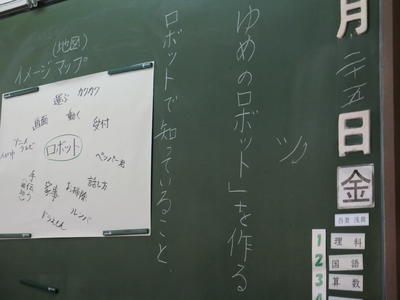 月
二十五
日
金
1 理科
2 国語
3 算数
ゆめのロボット」を作る
ロボットで知っていること、
(地図)
イメージマップ
ロボット
運ぶ
カクカク
画面
働く
受付
ペッパー君
話し方
お掃除
家事
ルンバ
ドラえもん
手